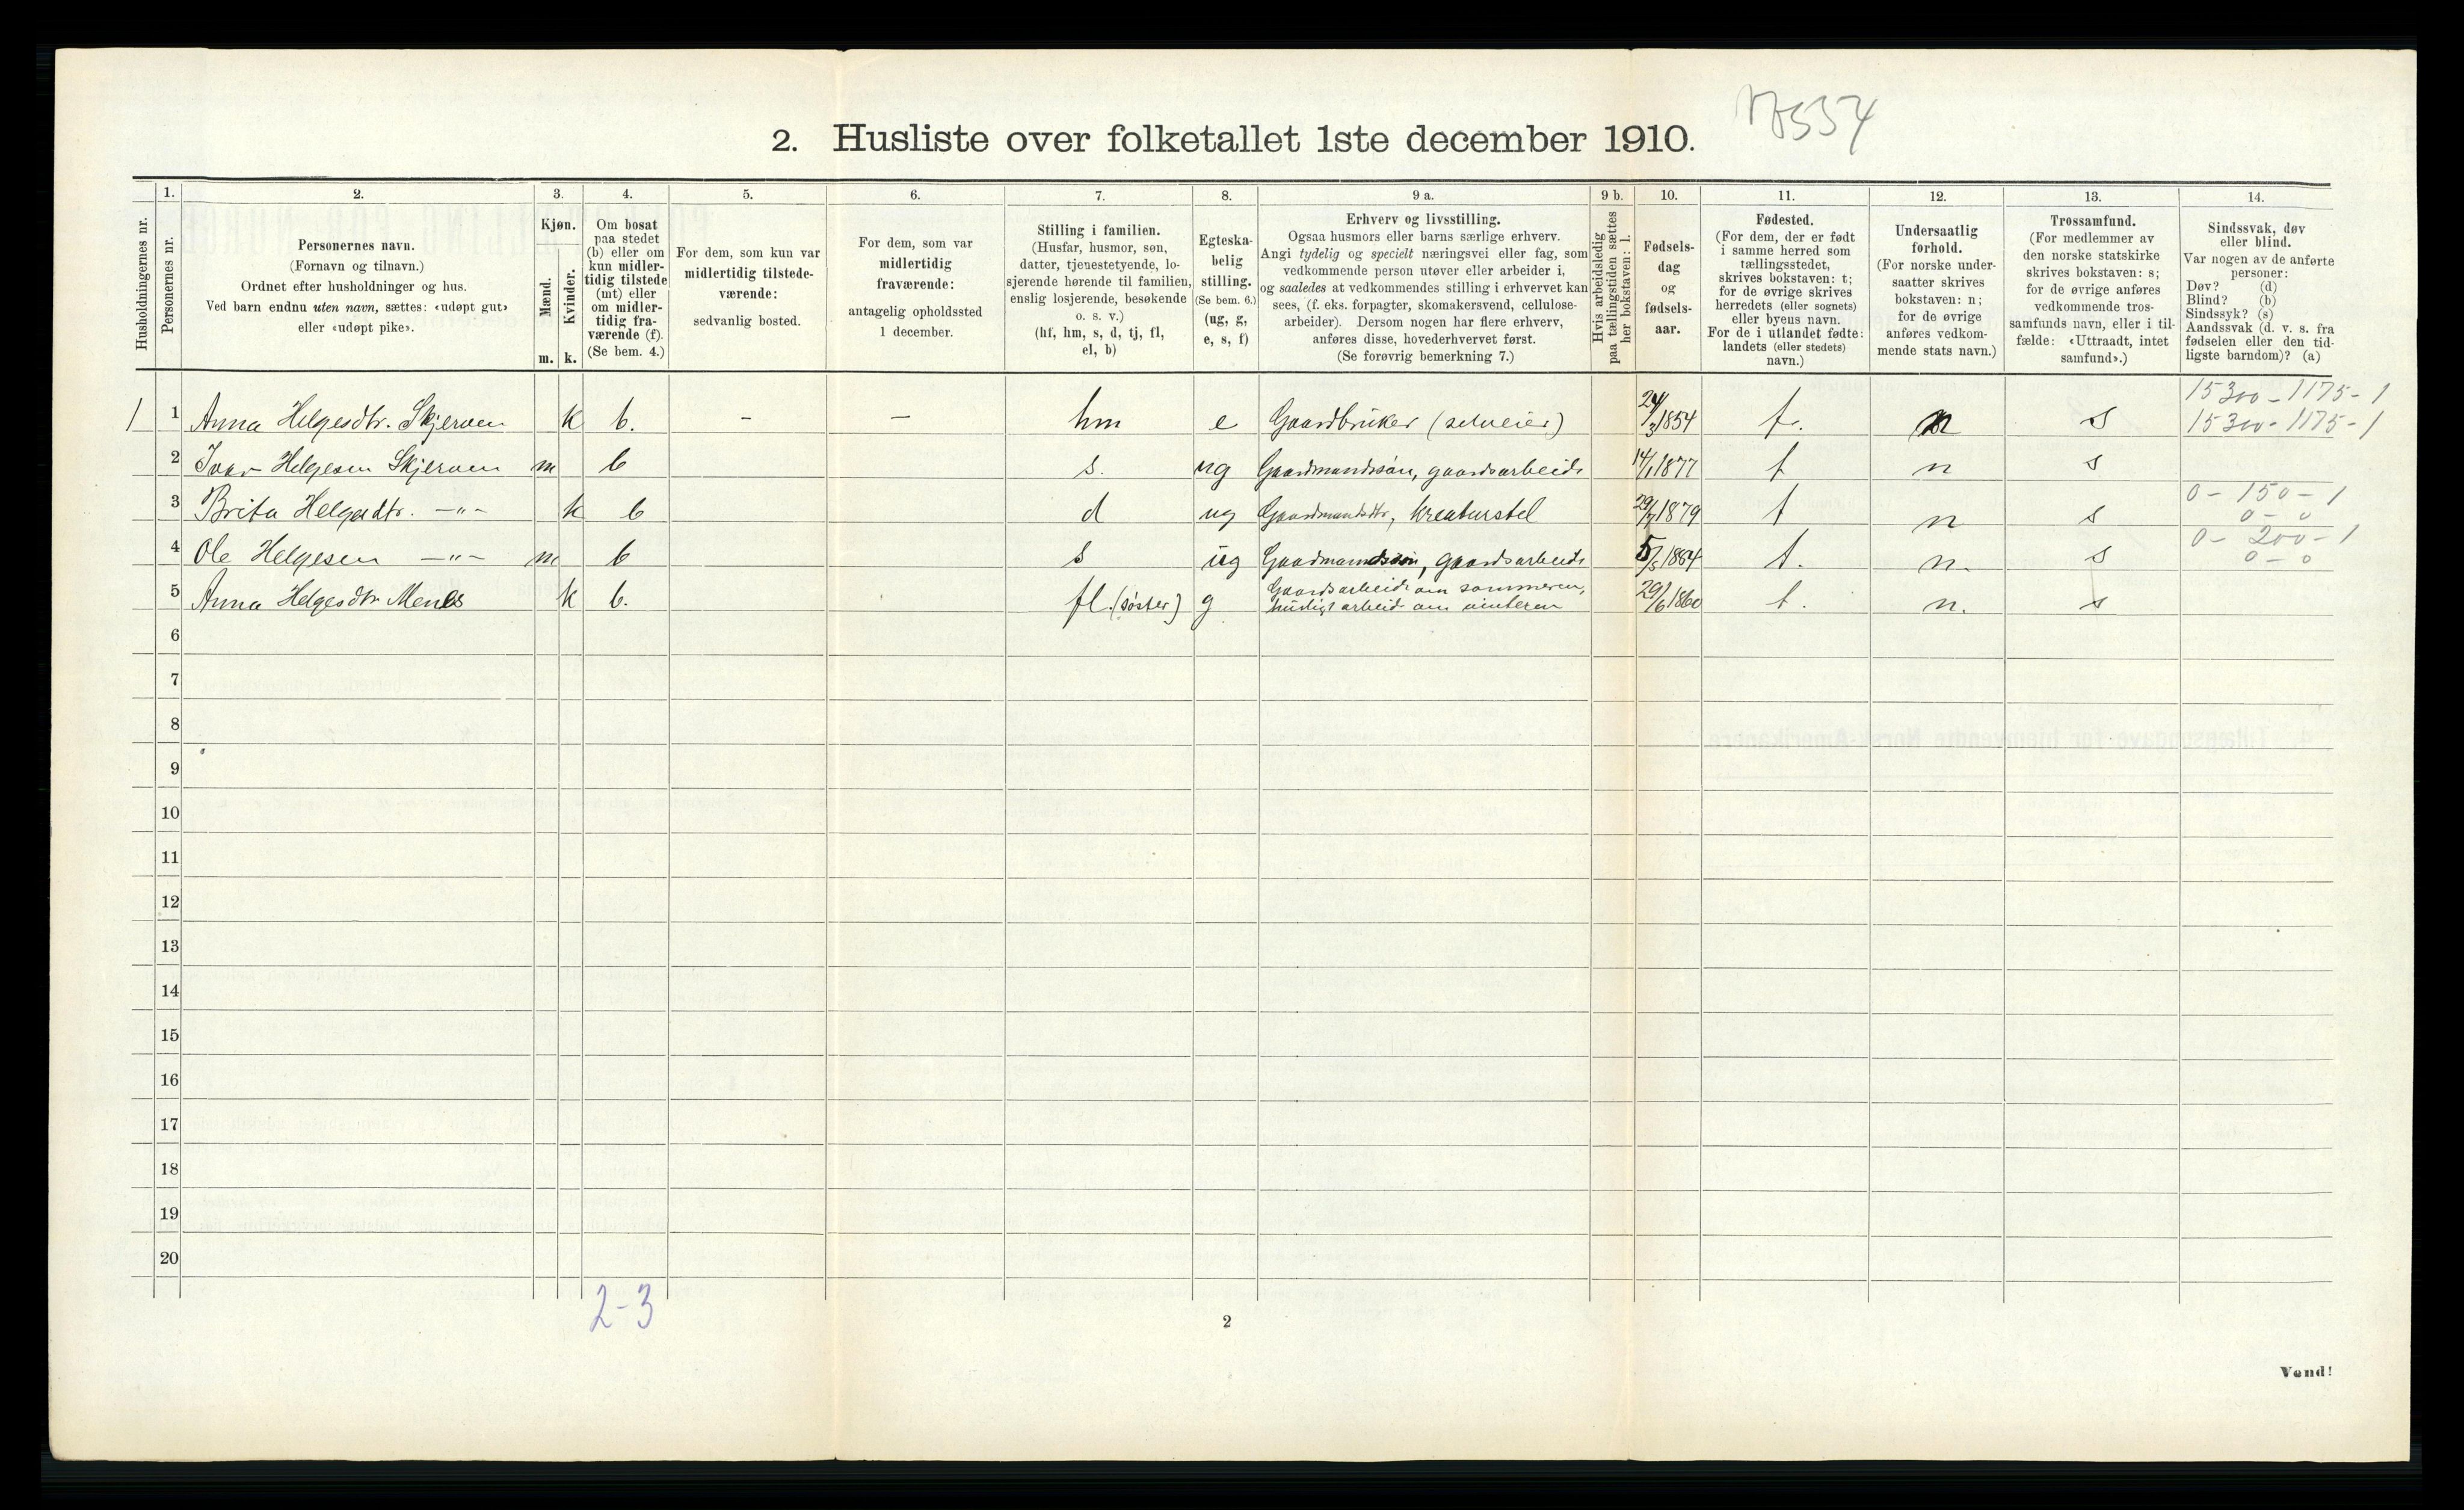 2. Husliste over folketallet 1ste december 1910.
Husholdningernes nr.
1.
Personernes nr.
2.
Personernes navn.
(Fornavn og tilnavn.)
Ordnet efter husholdninger og hus.
Ved barn endnu uten navn, sættes: «udøpt gut»
eller «udøpt pike».
3.
Kjøn.
Mænd.
Kvinder.
m. k.
4.
Om bosat
paa stedet
(b) eller om
kun midler-
tidig tilstede
(mt) eller
om midler-
tidig fra-
værende (f).
(Se bem. 4.)
5.
For dem, som kun var
midlertidig tilstede-
værende:
sedvanlig bosted.
6.
For dem, som var
midlertidig
fraværende:
antagelig opholdssted
1 december.
7.
Stilling i familien.
(Husfar, husmor, søn,
datter, tjenestetyende, lo-
sjerende hørende til familien,
enslig losjerende, besøkende
o. s. v.)
(hf, hm, s, d, tj, fl,
el, b)
8.
Egteska-
belig
stilling.
(Se bem. 6.)
(ug, g,
e, s, f)
9 a.
Erhverv og livsstilling.
Ogsaa husmors eller barns særlige erhverv.
Angi tydelig og specielt næringsvei eller fag, som
vedkommende person utøver eller arbeider i,
og saaledes at vedkommendes stilling i erhvervet kan
sees, (f. eks. forpagter, skomakersvend, cellulose-
arbeider). Dersom nogen har flere erhverv,
anføres disse, hovederhvervet først.
(Se forøvrig bemerkning 7.)
9 b.
Hvis arbeidsledig
paa tællingstiden sættes
her bokstaven: l.
10.
Fødsels-
dag
og
fødsels-
aar.
11.
Fødested.
(For dem, der er født
i samme herred som
tællingsstedet,
skrives bokstaven: t;
for de øvrige skrives
herredets (eller sognets)
eller byens navn.
For de i utlandet fødte:
landets (eller stedets)
navn.)
12.
Undersaatlig
forhold.
(For norske under-
saatter skrives
bokstaven: n;
for de øvrige
anføres vedkom-
mende stats navn.)
13.
Trossamfund.
(For medlemmer av
den norske statskirke
skrives bokstaven: s;
for de øvrige anføres
vedkommende tros-
samfunds navn, eller i til-
fælde: «Uttraadt, intet
samfund».)
14.
Sindssvak, døv
eller blind.
Var nogen av de anførte
personer:
Døv? (d)
Blind? (b)
Sindssyk? (s)
Aandssvak (d. v. s. fra
fødselen eller den tid-
ligste barndom)? (a)
15300-1175-1
1 1 Anna Helgesdtr. Skjerven k b. - - hm e Gaardbruker (selveier) 24/3 1854 t. n s 15300-1175-1
2 Ivar Helgesen Skjerven m b s. ug Gaardmandssøn, gaardsarbeide 14/1 1877 t n s
0-150-1
3 Brita Helgesdtr. -"- k b d ug Gaardmandsdtr, kreaturstel 29/7 1879 t n s 0-0
0-200-1
4 Ole Helgesen -"- m b s ug Gaardmandssøn, gaardsarbeide 5/5 1884 t. n. s 0-0
5 Anna Helgesdtr k b. fl. (søster) g Gaardsarbeide om sommeren, 29/6 1860 t. n. s
husligt arbeid om vinteren
6
7
8
9
10
11
12
13
14
15
16
17
18
19
20
2-3
2
Vend!